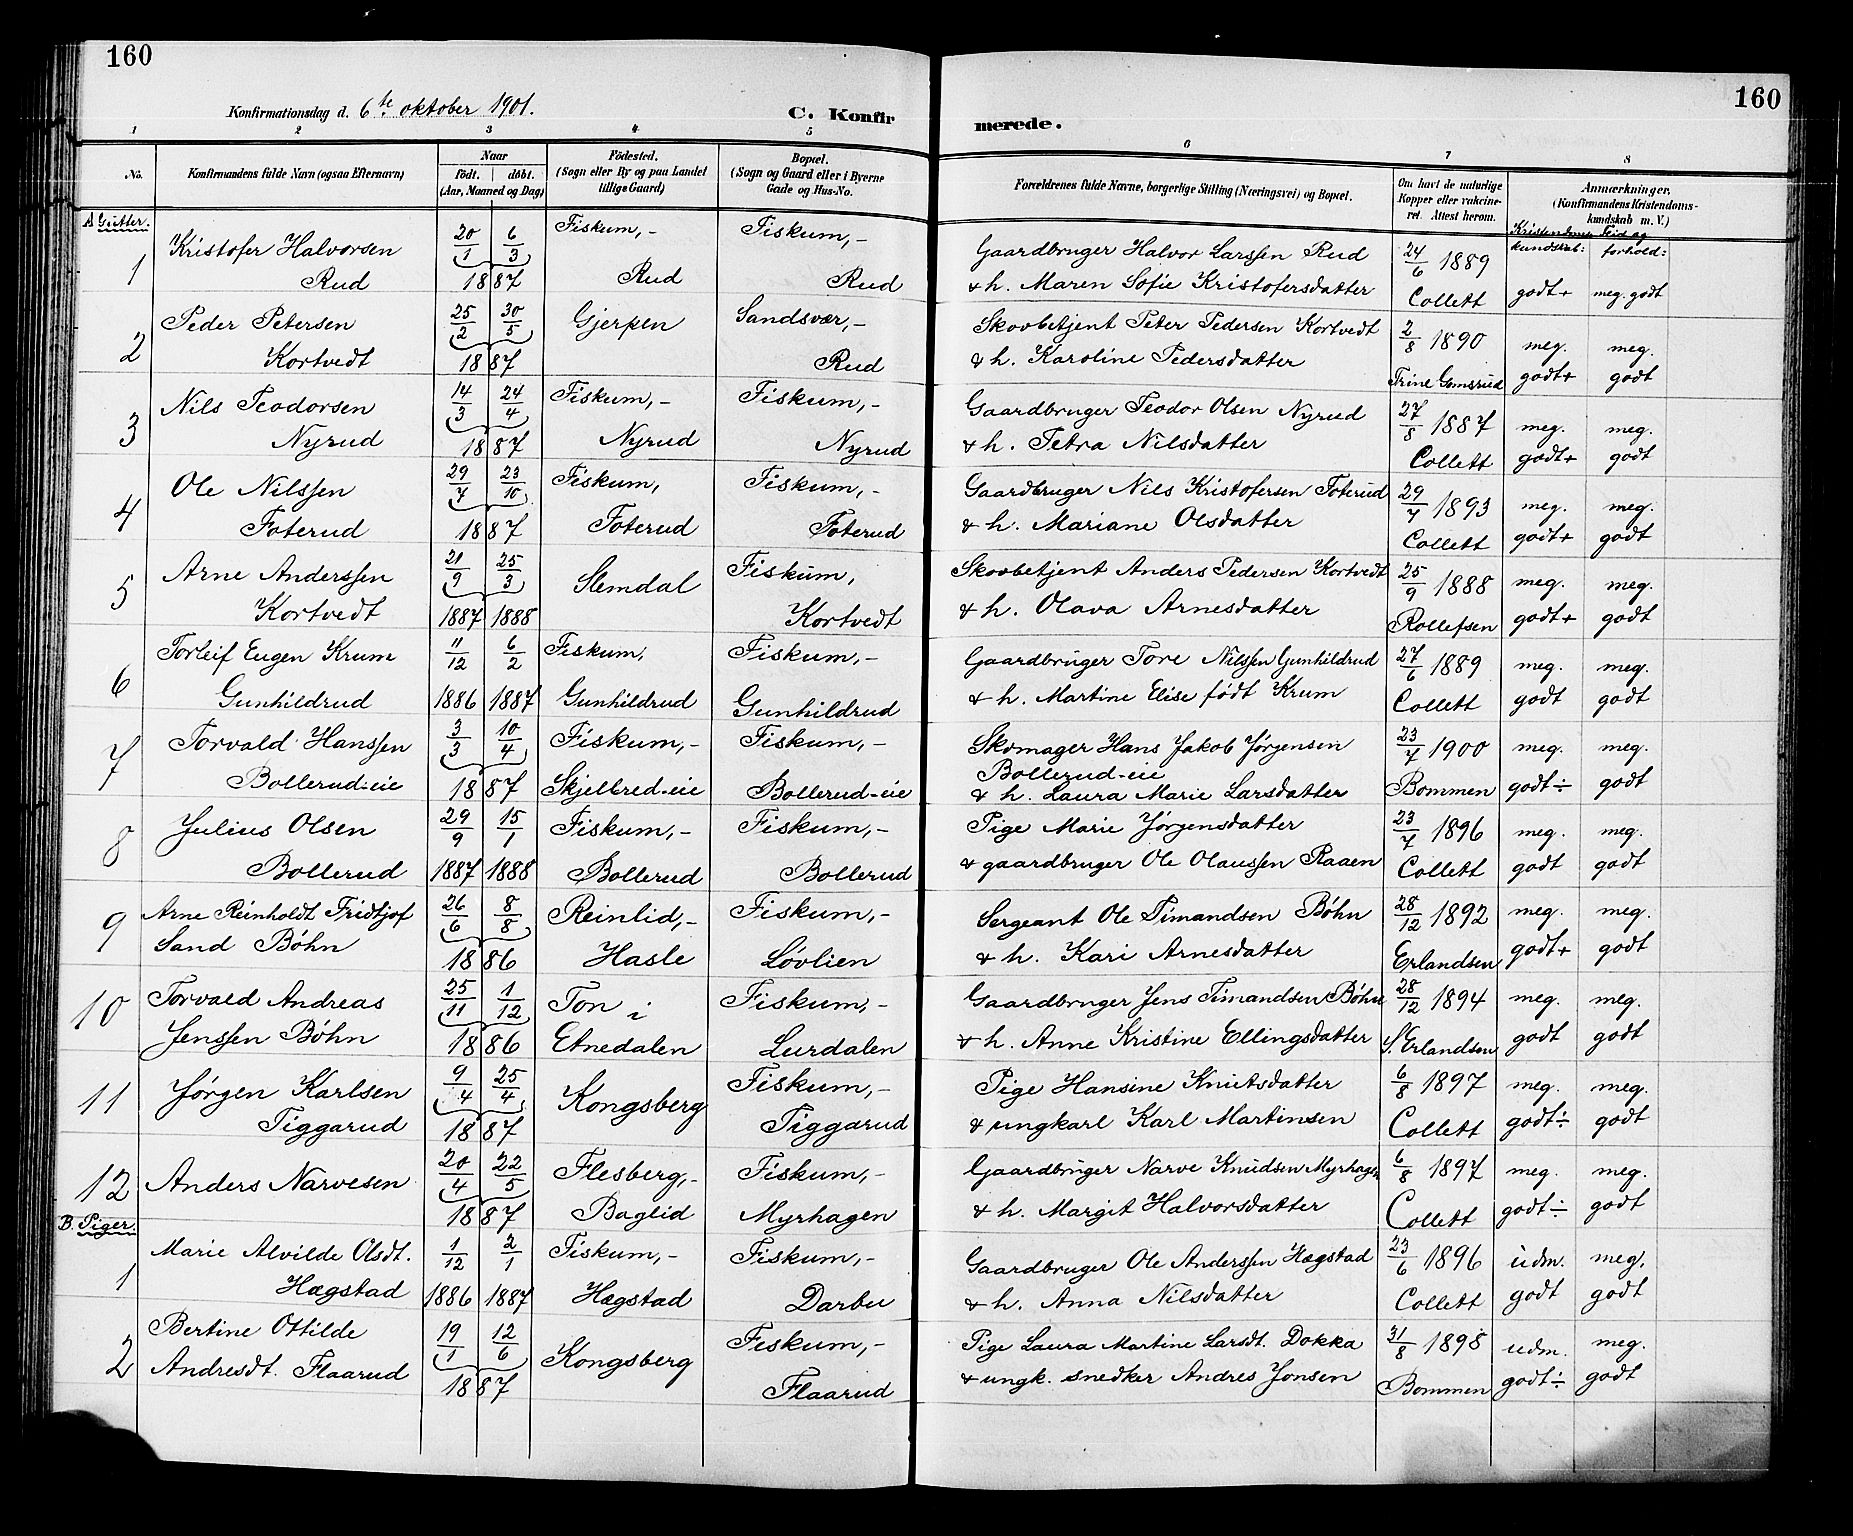 160
160
Konfirmationsdag d. 6te oktober 1901.
C. Konfir
merede.
1 2 3 4 5 6 7 8
No.
Konfirmandens fulde Navn (ogsaa Efternavn)
Naar
Födt. döbt.
(Aar, Maaned og Dag)
Födested.
(Sogn eller By og paa Landet
tillige Gaard)
Bopæl.
(Sogn og Gaard eller i Byerne
Gade og Hus-No.
Forældrenes fulde Navne, borgerlige Stilling (Næringsvei) og Bopæl.
Om havt de naturlige
Kopper eller vakcine-
ret. Attest herom.
Anmærkninger.
(Konfirmandens Kristendoms-
kundskab m. V.)
Kristendoms kundskab: Flid og forhold:
A Gutter.
1 Kristofer Halvorsen 20/1 6/3 Fiskum,- Fiskum,- Gaardbruger Halvor Larssen Rud 24/6 1889
Rud 1887 Rud Rud & h. Maren Sofie Kristofersdatter Collett godt+ meg. godt
2 Peder Petersen 25/2 30/5 Gjerpen Sandsvær,- Skovbetjent Peter Pedersen Kortvedt 2/8 1890 meg. meg.
Kortvedt 1887 Rud & h. Karoline Pedersdatter Trine Gomsrud godt+ godt
3 Nils Teodorsen 14/3 24/4 Fiskum,- Fiskum,- Gaardbruger Teodor Olsen Nyrud 27/8 1887 meg. meg.
Nyrud 1887 Nyrud Nyrud & h. Petra Nilsdatter Collett godt+ godt
4 Ole Nilssen 29/7 23/10 Fiskum, Fiskum,- Gaardbruger Nils Kristofersen Foterud 29/7 1893 meg. meg.
Foterud 1887 Foterud Foterud & h. Mariane Olsdatter Collett godt+ godt
5 Arne Anderssen 21/9 25/3 Slemdal Fiskum, Skovbetjent Anders Pedersen Kortvedt 25/9 1888 meg. meg.
Kortvedt 1887 1888 Kortvedt & h. Olava Arnesdatter Rollefsen godt+ godt
6 Torleif Eugen Krum 11/12 6/2 Fiskum, Fiskum,- Gaardbruger Tore Nilssen Gunhildrud 27/6 1889 meg. meg.
Gunhildrud 1886 1887 Gunhildrud Gunhildrud & h. Martine Elise født Krum Collett godt godt
7 Torvald Hanssen 3/3 10/4 Fiskum,- Fiskum,- Skomager Hans Jakob Jørgensen 23/7 1900 meg. meg.
Bollerud-eie
Bollerud-eie 1887 Skjelbred-eie Bollerud-eie & h. Laura Marie Larsdatter Bommen godt÷ godt
8 Julius Olsen 29/9 15/1 Fiskum,- Fiskum,- Pige Marie Jørgensdatter 23/7 1896 meg. meg.
Bollerud 1887 1888 Bollerud Bollerud & gaardbruger Ole Olaussen Raaen Collett godt godt
9 Arne Reinholdt Fridtjof 26/6 8/8 Reinlid,- Fiskum,- Sergeant Ole Timandsen Bøhn 28/12 1892 meg. meg.
Sand Bøhn 1886 Hasle Løvlien & h. Kari Arnesdatter Erlandsen godt+ godt
10 Torvald Andreas 25/11 1/12 Ton i Fiskum,- Gaardbruger Jens Timandsen Bøhn 28/12 1894 meg. meg.
Jenssen Bøhn 1886 Etnedalen Lurdalen & h. Anne Kristine Ellingsdatter S. Erlandsen godt godt
11 Jørgen Karlsen 9/4 25/4 Kongsberg Fiskum,- Pige Hansine Knutsdatter 6/8 1897 meg. meg.
Tiggarud 1887 Tiggarud & ungkarl Karl Martinsen Collett godt÷ godt
12 Anders Narvesen 20/4 22/5 Flesberg,- Fiskum,- Gaardbruger Narve Knudsen Myrhagen 6/8 1897 meg. meg.
1887 Baglid Myrhagen & h. Margit Halvorsdatter Collett godt÷ godt
B. Piger.
1 Marie Alvilde Olsdt. 1/12 2/1 Fiskum,- Fiskum,- Gaardbruger Ole Anderssen Hægstad 23/6 1896 udm. meg.
Hægstad 1886 1887 Hægstad Darbu & h. Anna Nilsdatter Collett godt godt
2 Bertine Ottilde 19/1 12/6 Kongsberg Fiskum,- Pige Laura Martine Larsdt. Dokka 31/8 1898 udm. meg.
Andresdt. Flaarud 1887 Flaarud & ungk. snedker Andres Jonsen Bommen godt÷ godt